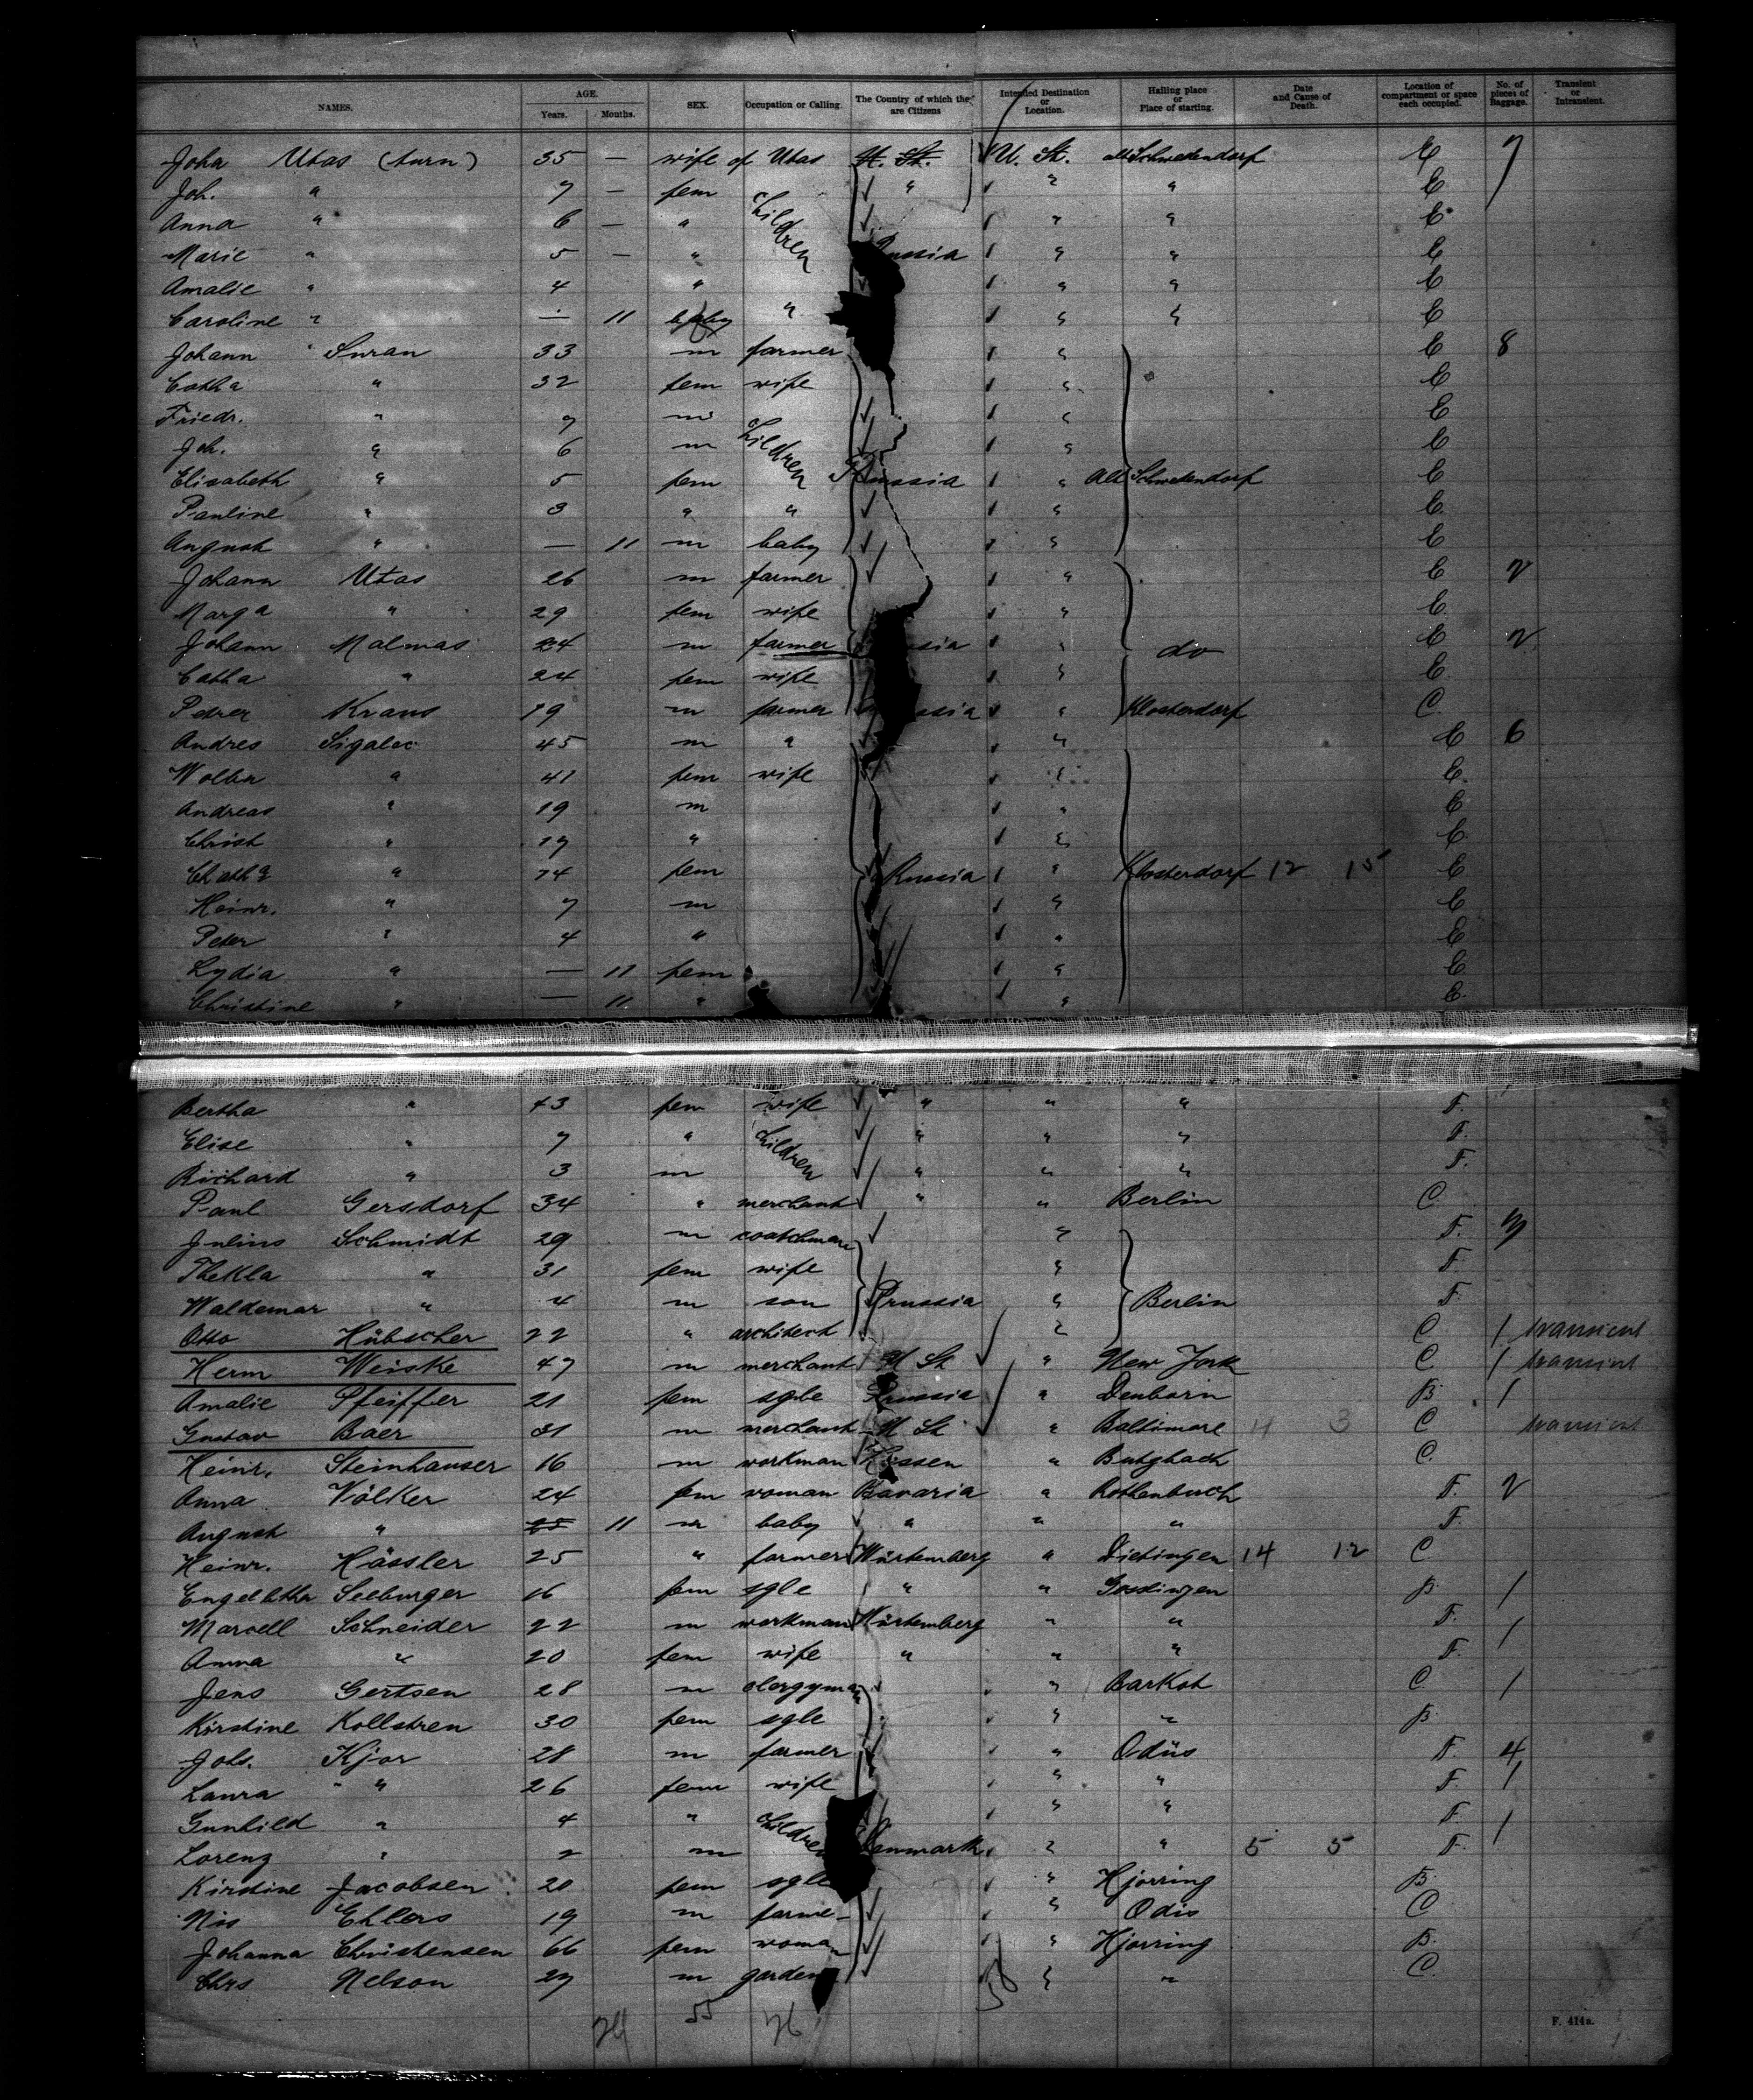 NAMES. AGE. Years. Months. SEX. Occupation or Calling. The Country of which they are Citizens Intended Destination or Location. Hailing place or Place of starting. Date and Cause of Death. Location of compartment or space each occupied. No. of pieces of Baggage. Transient or Intransient.
Joha Utas (turn) 35 — wife of Utas U. St. U. St. alt Schwedendorf E 7
Joh. " 7 — fem " " " E
Anna " 6 — " children " " E
Marie " 5 — " Russia " " E
Amalie " 4 " " " E
Caroline " — 11 baby " " " E
Johann Suran 33 m farmer " E 8
Catha " 32 fem wife " E
Friedr. " 7 m " E
Joh. " 6 m children " E
Elisabeth " 5 fem Russia " Alt Schwedendorf E
Pauline " 3 " " " E
August " — 11 m baby " E
Johann Utas 26 m farmer " E 2
Marga " 29 fem wife " E
Johann Malmas 24 m farmer " do E 2
Catha " 24 fem wife " E
Peter Kraus 19 m farmer " Klosterdorf C
Andres Sigalec 45 m " " E 6
Wolba " 41 fem wife " E
Andreas " 19 m " E
Christ " 17 " " E
Chatha " 14 fem Russia " Klosterdorf 12 15 E
Heinr. " 7 m " E
Peter " 4 " " E
Lydia " — 11 fem " E
Christine " — 11 " " E
Bertha " 43 fem wife " " " F.
Elise " 7 " children " " " F.
Richard " 3 m " " " F.
Paul Gersdorf 34 " merchant " " Berlin C.
Julius Schmidt 29 m coatchman " F. 3
Thekla " 31 fem wife " F
Waldemar " 4 m son Prussia " Berlin F.
Otto Hübscher 22 " architect " C 1 transient
Herm Weiske 47 m merchant U St " New York C 1 transient
Amalie Pfeiffer 21 fem sgle Prussia " B. 1
Gustav Baer 31 m merchant U St " Baltimore 11 3 C transient
Heinr. Steinhauser 16 m workman Hessen " Butzbach C.
Anna Völker 24 fem woman Bavaria " Rothenbuch F. 2
August " 11 m baby " " " F.
Heinr. Hässler 25 " farmer Würtemberg " Dietingen 14 12 C
Seeburger 16 fem sgle " " B. 1
Marcell Schneider 22 m workman Würtemberg " " F. 1
Anna " 20 fem wife " " " F.
Jens Gertsen 28 m clergyman " Barkot C 1
Kirstine Kollstren 30 fem sgle " " B.
Johs. Kjar 28 m farmer " Odüs F. 4
Laura " 26 fem wife " " F. 1
Gunhild " 4 " children " " F. 1
Lorenz " 2 m Denmark " " 5 5 F.
Kirstine Jacobsen 20 fem sgle " Hjorring B.
Nis Ehlers 19 m farme " Odis C
Johanna Christensen 66 fem woman " Hjorring B.
Chrs Nelson 27 m garden " " C.
55 76
F. 414a.